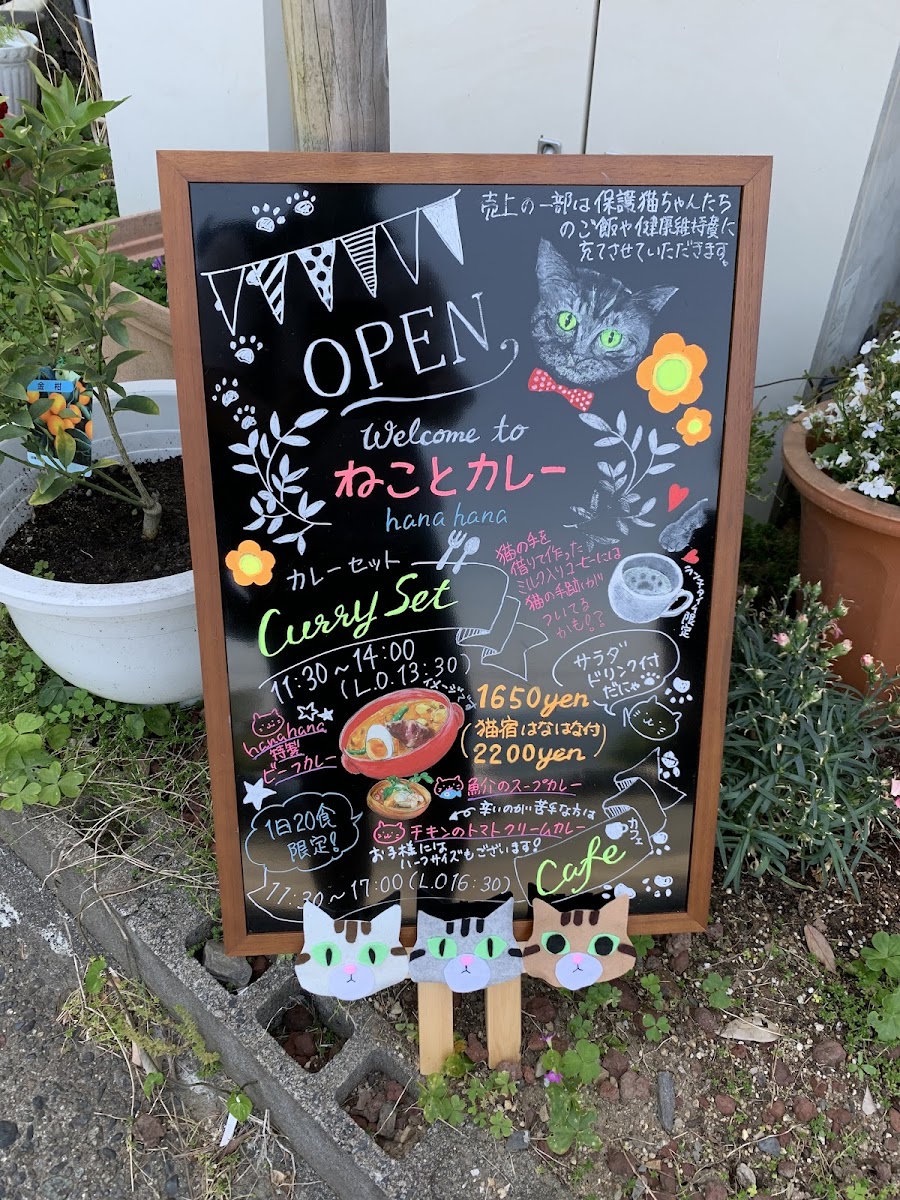 売上の一部は保護猫ちゃんたち
のご飯や健康維持費に
充てさせていただきます。
OPEN
Welcome to
ねことカレー
hana hana
猫の手を
借りて作った
ミルク入りコーヒーには
猫の手跡が
ついてる
かも!?
ランチタイム限定
カレーセット
Curry Set
11:30~14:00
(L.O.13:30)
イメージです
1650yen
(猫宿はなはな付)
2200yen
サラダ
ドリンク付
だにゃ
hanahana
特製
ビーフカレー
魚介のスープカレー
辛いのが苦手な方は
チキンのトマトクリームカレー
お子様には
ハーフサイズもございます!
1日20食
限定!
カフェ
Cafe
11:30~17:00(L.O16:30)
金柑